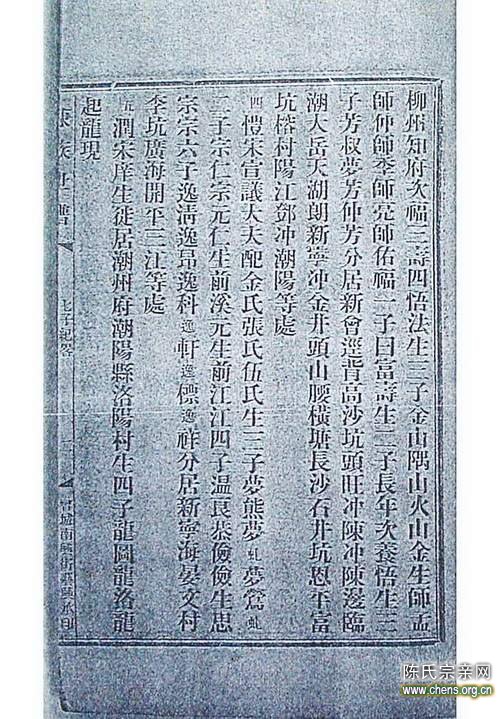 柳州知府次福三壽四悟法生三子金山隅山火山金生師孟
師仲師季師亮師佑福一子曰富壽生二子長年次養悟生三
子芳叔夢芳仲芳分居新會逕背高沙坑頭旺冲陳冲陳邊臨
潮大岳天湖朗新寧冲金井頭山腰橫塘長沙石井坑恩平富
坑榕村陽江鄧冲潮陽等處
四愷宋宣議大夫配金氏張氏伍氏生三子夢熊夢虬夢鶯虬
二子宗仁宗元仁生前溪元生前江江四子温良恭儉儉生思
宗宗六子逸淸逸昂逸科逸軒逸僄逸祥分居新寧海晏文村
季坑廣海開平三江等處
五潤宋庠生徙居潮州府潮陽縣洛陽村生四子龍圖龍洛龍
起龍現
陳氏宗亲网
www.chens.org.cn